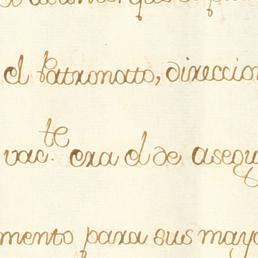 el Patronato, direccion
vac.te era el de asegu
mento para sus mayo